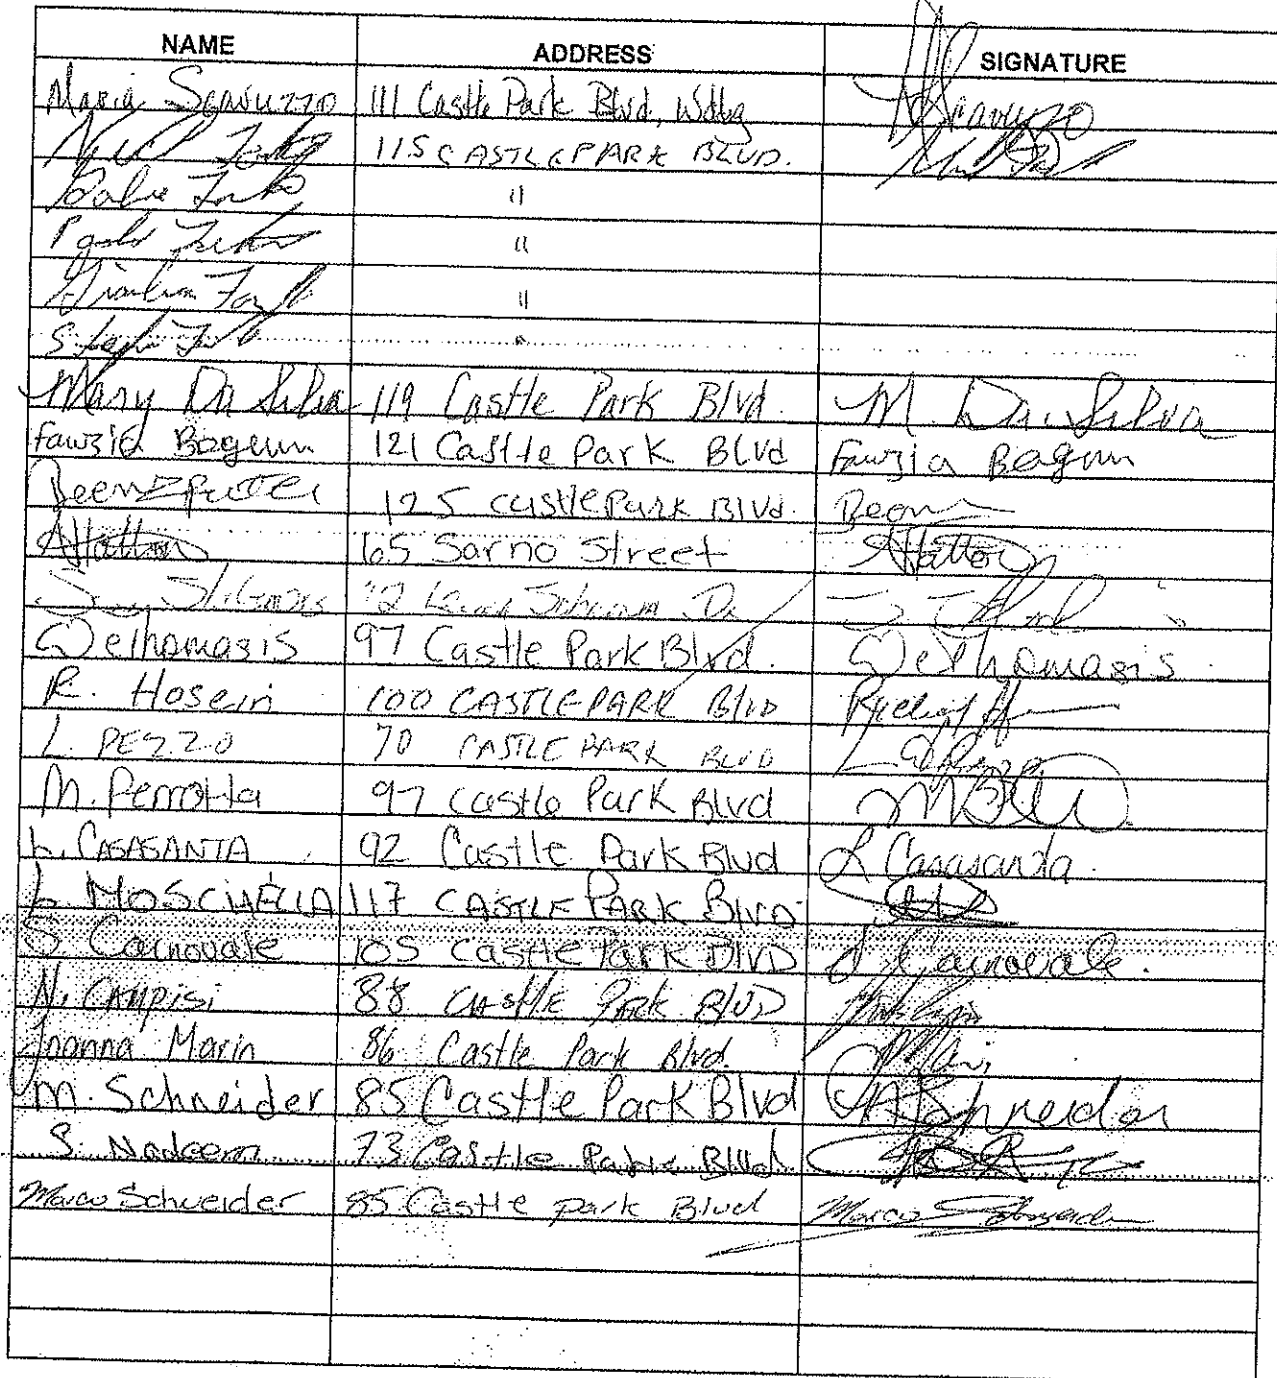 NAME ADDRESS SIGNATURE
Maria Scavuzzo 111 Castle Park Blvd, Wdbg Scavuzzo
115 CASTLE PARK BLVD.
"
"
"
"
Mary Da Silva 119 Castle Park Blvd. M. Da Silva
Fawzia Begum 121 Castle Park BLVd Fawzia Begum
125 castle Park BLVd.
AHatton 65 Sarno Street AHatton
12
DeThomasis 97 Castle Park Blvd. DeThomasis
R. Hosein 100 CASTLE PARK Blvd
L. PEZZO 70 CASTLE PARK BLVD
M. Perrotta 97 castle Park Blvd
L. CASASANTA 92 Castle Park Blvd L Casasanta
L MOSCHELLA 117 CASTLE PARK BLVD
S Carnovale 105 Castle Park BLVD S Carnovale.
N. CAMPISI 88 CASTLE PARK BLVD
Joanna Marin 86 Castle Park Blvd.
M. Schneider 85 Castle Park Blvd M Schneider
S. Nadeem 73 Castle Park Blvd
Marco Schneider 85 Castle park Blvd Marco Schneider